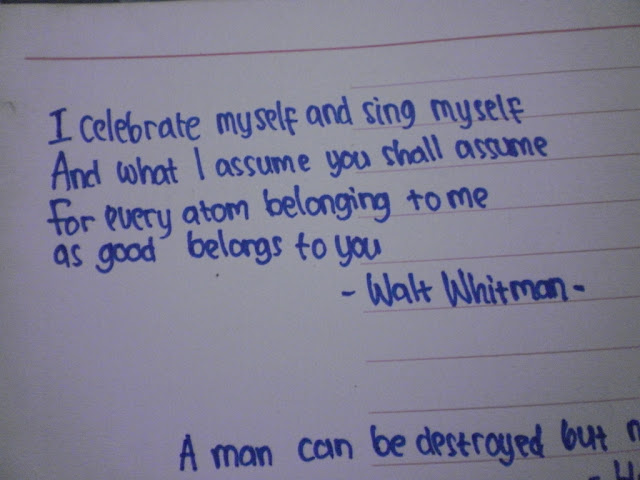 I celebrate myself and sing myself
And what I assume you shall assume
for every atom belonging to me
as good belongs to you
- Walt Whitman -
A man can be destroyed but